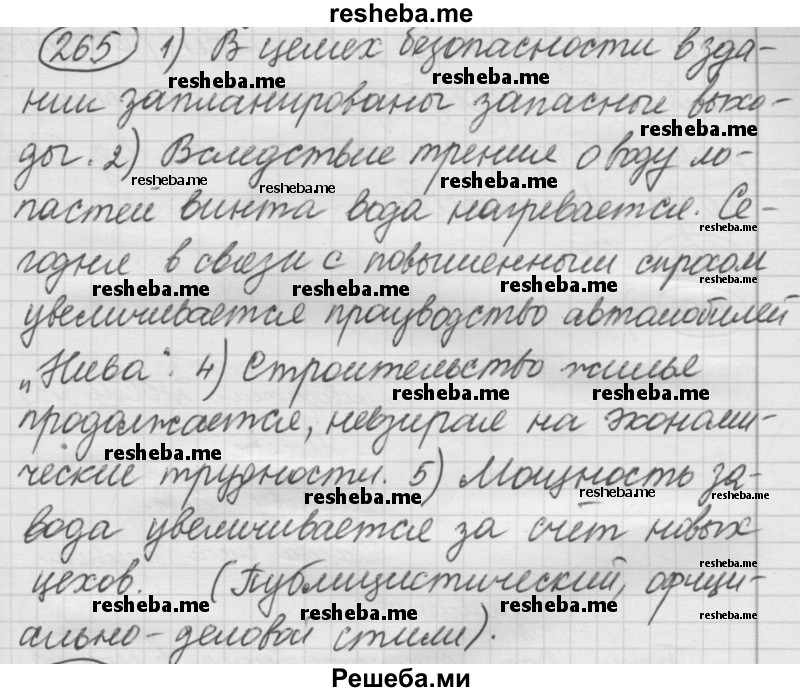 resheba.me
265 1) В целях безопасности в зда-
resheba.me resheba.me
нии запланированы запасные выхо-
resheba.me
ды. 2) Вследствие трения о воду ло-
resheba.me resheba.me resheba.me
пастей винта вода нагревается. Се-
resheba.me
годня в связи с повышенным спросом
resheba.me resheba.me resheba.me
увеличивается производство автомобилей
„Нива“. 4) Строительство жилья
resheba.me resheba.me
продолжается, невзирая на экономи-
resheba.me
ческие трудности. 5) Мощность за-
resheba.me resheba.me resheba.me
вода увеличивается за счёт новых
цехов. (Публицистический, офици-
resheba.me
resheba.me resheba.me resheba.me
ально-деловой стили).
resheba.me
Решеба.ми